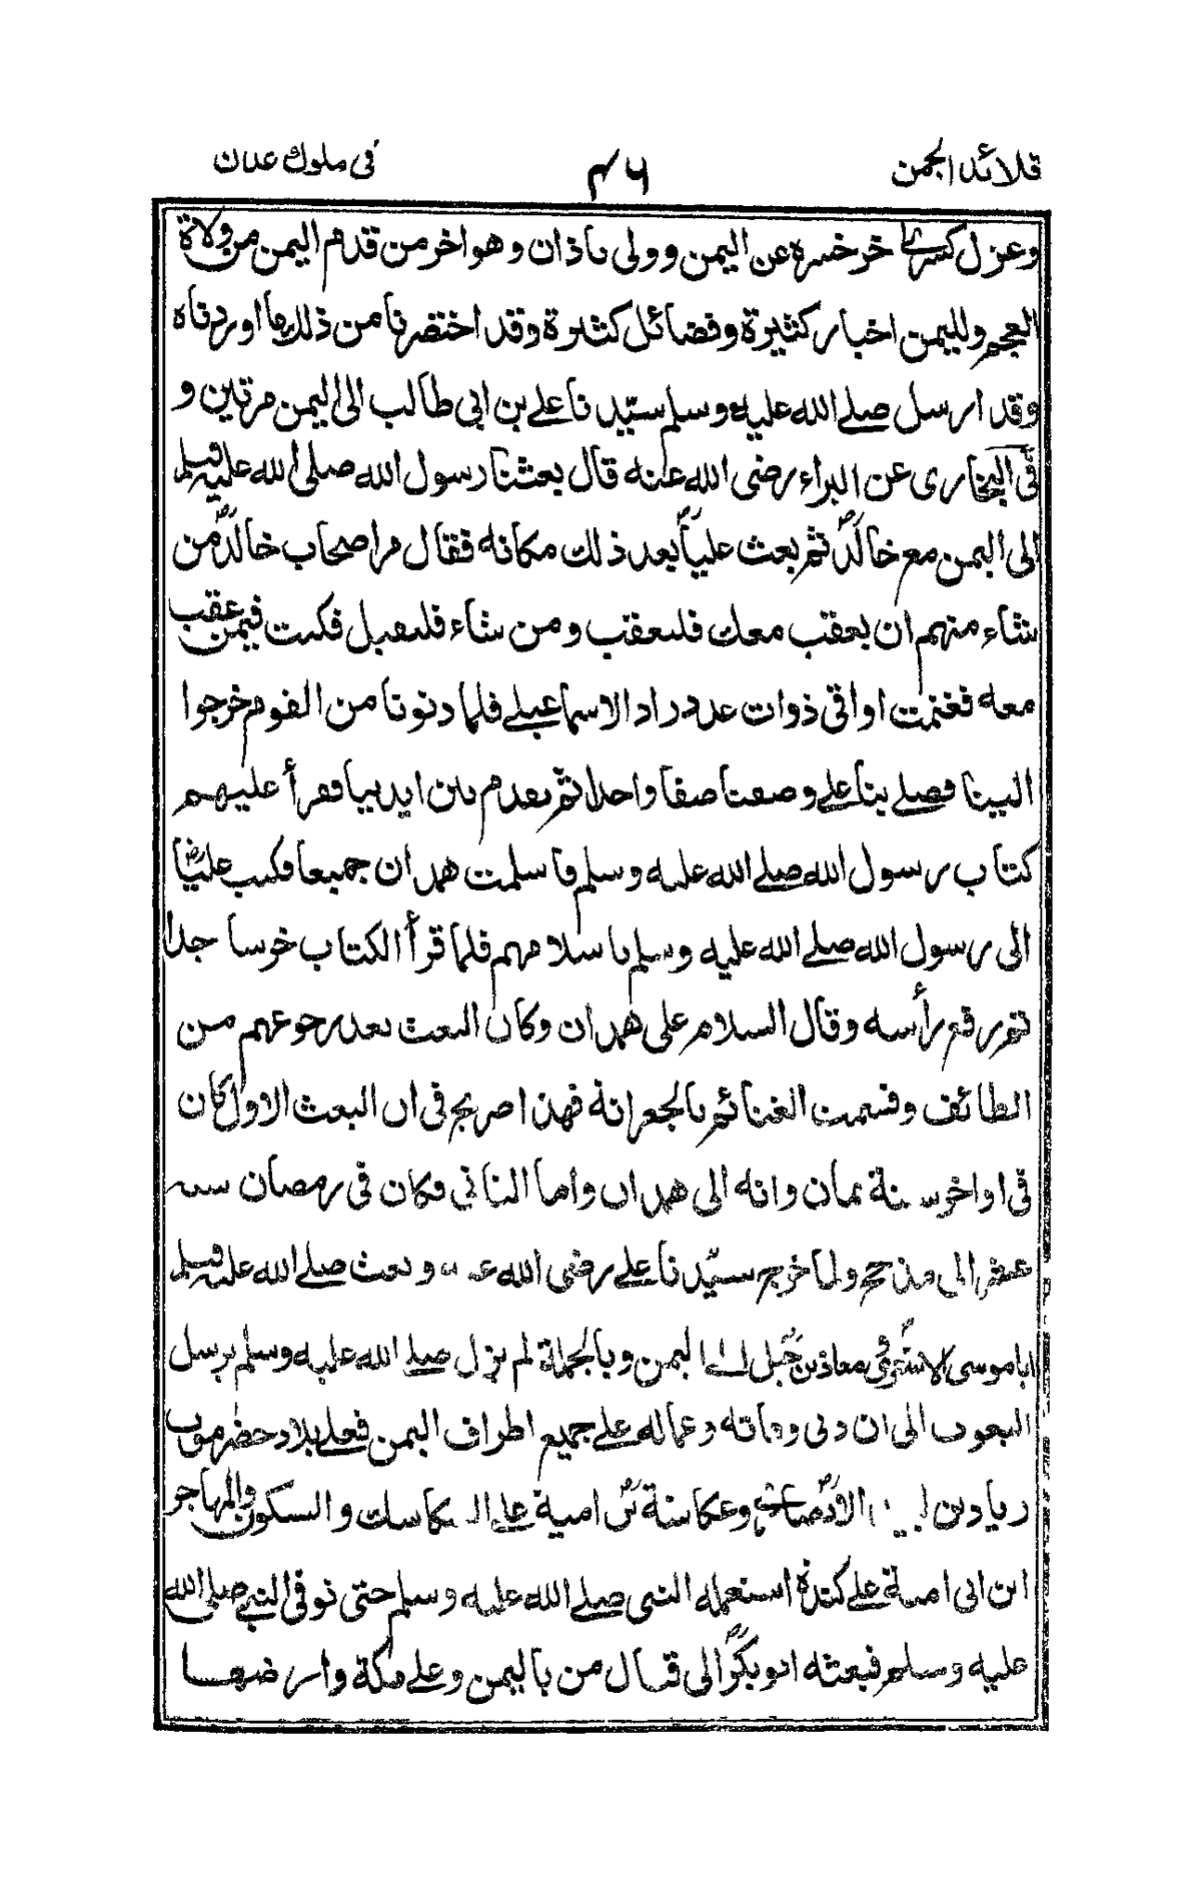 قلائد الجمن
٤٦
فى ملوك عدن
وعزل كسرى خرخسره عن اليمن وولى باذان وهو اخر من قدم اليمن من ولاة
العجم ولليمن اخبار كثيرة وفضائل كثيرة وقد اختصرنا من ذلك ما اوردناه
وقد ارسل صلى الله عليه وسلم سيّدنا على بن ابى طالب الى اليمن مرتين و
فى البخارى عن البراء رضى الله عنه قال بعثنا رسول الله صلى الله عليه وسلم
الى اليمن مع خالد ثم بعث علياً بعد ذلك مكانه فقال مر اصحاب خالد من
شاء منهم ان يعقب معك فليعقب ومن شاء فليقبل فكنت فيمن عقب
معه فغنمت اواقى ذوات عدد زاد الاسماعيلى فلما دنونا من القوم خرجوا
الينا فصلى بنا على وصفنا صفا واحدا ثم تقدم بين ايدينا فقرأ عليهم
كتاب رسول الله صلى الله عليه وسلم فاسلمت همدان جميعا فكتب علىّ
الى رسول الله صلى الله عليه وسلم باسلامهم فلما قرأ الكتاب خر ساجدا
ثم رفع رأسه وقال السلام على همدان وكان البعث بعد رجوعهم من
الطائف وقسمت الغنائم بالجعرانة فهذا صريح فى ان البعث الاول كان
فى اواخر سنة ثمان وانه الى همدان وأما الثانى فكان فى رمضان سنة
عشر الى مذحج ولما خرج سيّدنا على رضى الله عنه وبعث صلى الله عليه وسلم
ابا موسى الاشعرى و معاذ بن جبل الى اليمن وبالجملة لم يزل صلى الله عليه وسلم يرسل
البعوث الى ان دنى وفاته وعماله على جميع اطراف اليمن فعلى بلاد حضرموت
زياد بن لبيد الانصارى وعكاشة بن امية على السكاسك والسكون والمهاجر
ابن ابى امية على كندة استعمله النبى صلى الله عليه وسلم حتى توفى النبى صلى الله
عليه وسلم فبعثه ابو بكر الى قتال من باليمن وعلى مكة وارضها